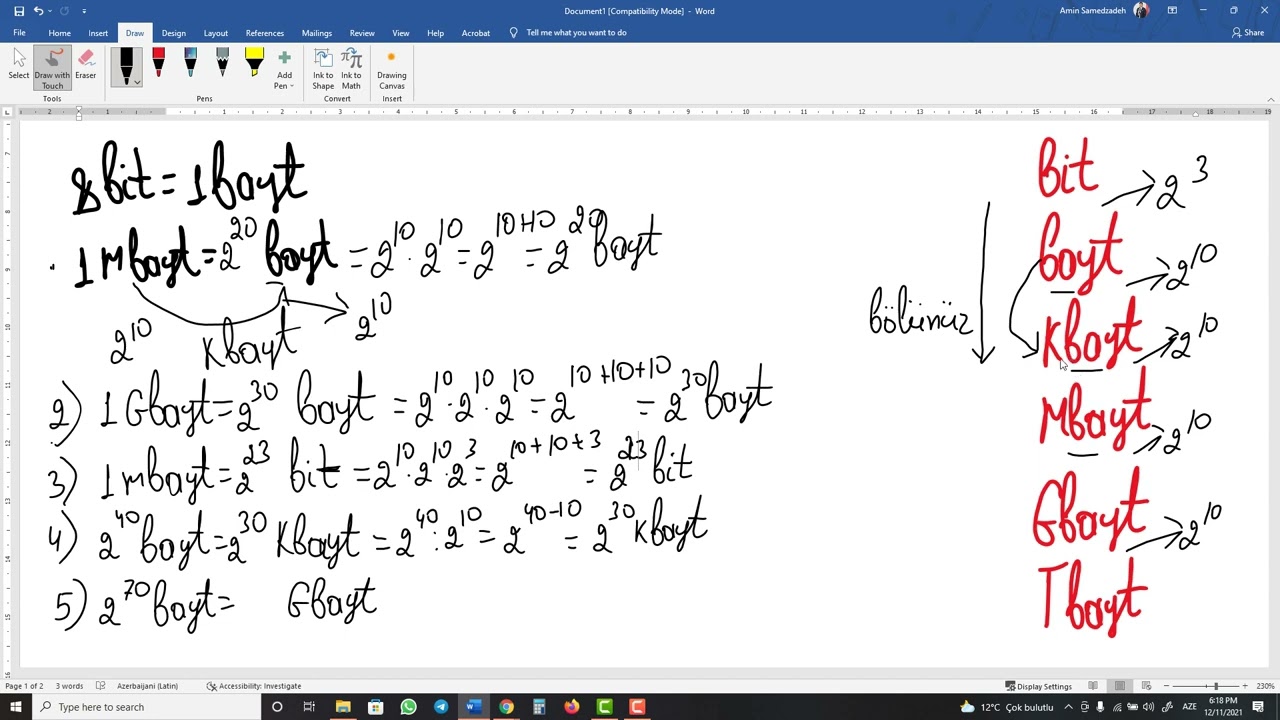 Document1 [Compatibility Mode] - Word
Amin Samedzadeh
File Home Insert Draw Design Layout References Mailings Review View Help Acrobat Tell me what you want to do
Share
Select Draw with Touch Eraser Add Pen Ink to Shape Ink to Math Drawing Canvas
Tools Pens Convert Insert
2 1 1 2 3 4 5 6 7 8 9 10 11 12 13 14 15 16 17 18 19
8 bit = 1 bayt
1 Mbayt = 2^20 bayt = 2^10 · 2^10 = 2^10+10 = 2^20 bayt
2^10 Kbayt 2^10
2) 1 Gbayt = 2^30 bayt = 2^10 · 2^10 · 2^10 = 2^10+10+10 = 2^30 bayt
3) 1 Mbayt = 2^23 bit = 2^10 · 2^10 · 2^3 = 2^10+10+3 = 2^23 bit
4) 2^40 bayt = 2^30 Kbayt = 2^40 : 2^10 = 2^40-10 = 2^30 Kbayt
5) 2^70 bayt = Gbayt
bölünür
bit → 2^3
bayt → 2^10
Kbayt → 2^10
Mbayt → 2^10
Gbayt → 2^10
Tbayt
Page 1 of 2 3 words Azerbaijani (Latin) Accessibility: Investigate Display Settings 230%
Type here to search 12°C Çox bulutlu AZE 6:18 PM
12/11/2021